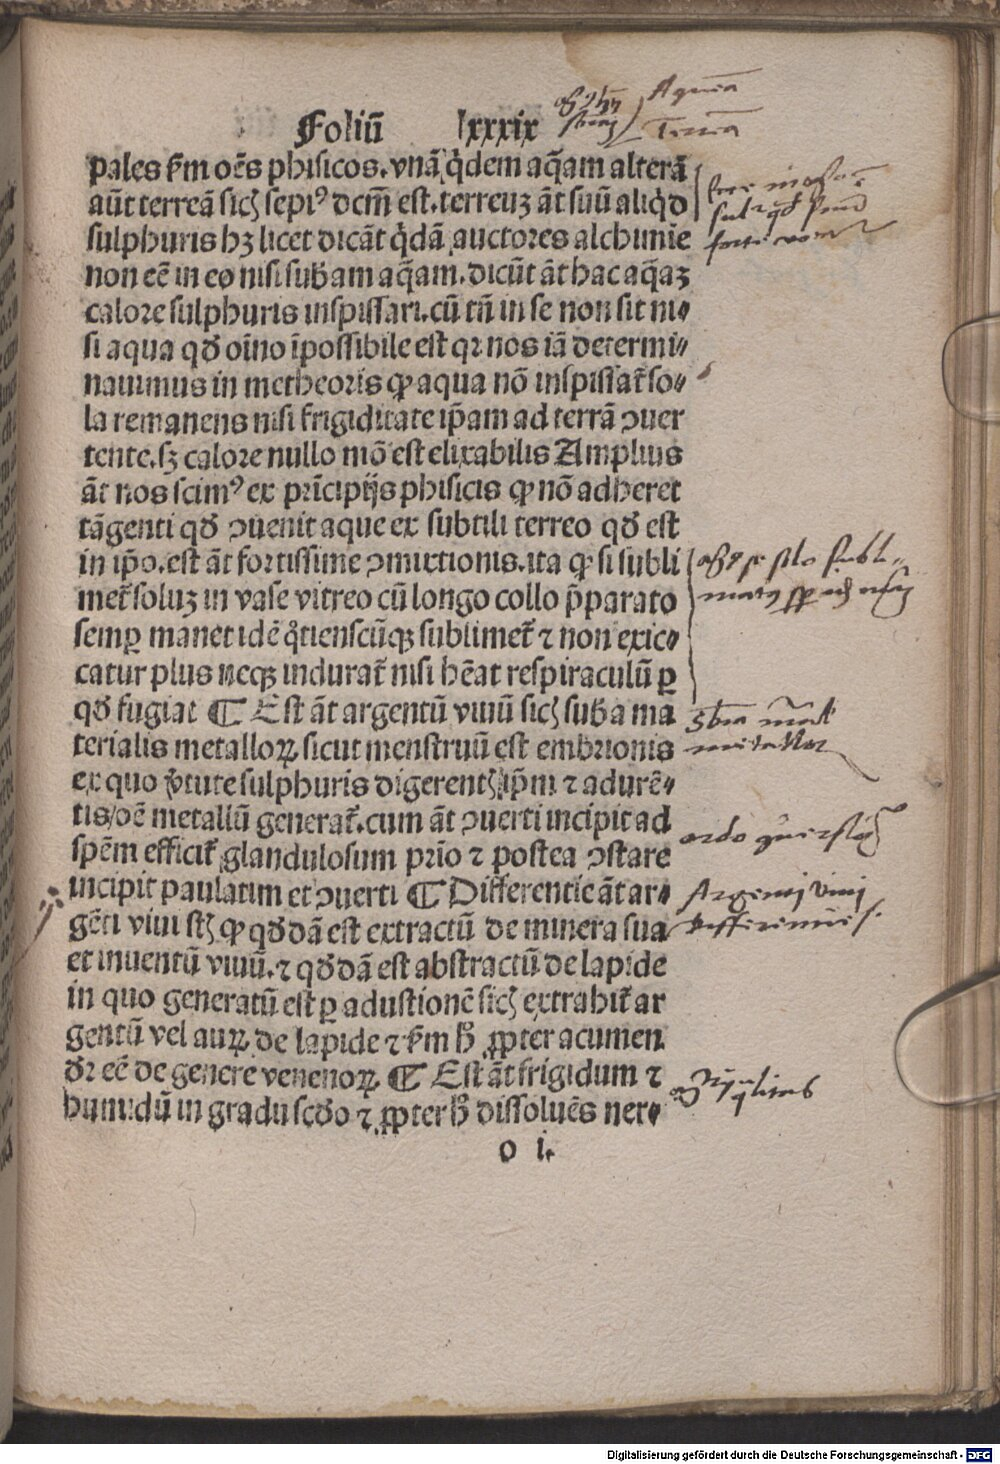 Foliū lxxxix
Aquea
Terrea
pales ẜm oēs phisicos. vnā q̇dem aq̄am alterā
aūt terreā sicꝫ sepiꝰ dcm̄ est. terreuꝫ āt suū aliq̇d
sulphuris hꝫ licet dicāt q̇dā auctores alchimie
non eē in eo nisi sub̄am aq̄am. dicūt āt hac aq̄aꝫ
calore sulphuris inspissari. cū tn̄ in se non sit ni⸗
si aqua qd̄ oīno īpossibile est qꝛ nos iā determi⸗
nauimus in metheoris ꝙ aqua nō inspissat̄ so⸗
la remanens nisi frigiditate ip̄am ad terrā ↄuer
tente. sꝫ calore nullo mō est elixabilis Amplius
āt nos scimꝰ ex prīcipijs phisicis ꝙ nō adheret
tāgenti qd̄ ↄuenit aque ex subtili terreo qd̄ est
in ip̄o. est āt fortissime ↄmixtionis. ita ꝙ si subli
met̄ soluꝫ in vase vitreo cū longo collo p̄parato
semꝑ manet idē q̊tienscūqꝫ sublimet̄ ⁊ non exic⸗
catur plus neqꝫ indurat̄ nisi hēat respiraculū ꝑ
qd̄ fugiat ¶ Est āt argentū viuū sicꝫ sub̄a ma
terialis metalloꝝ sicut menstruū est embrionis
ex quo v̄tute sulphuris digerentꝫ ip̄m ⁊ adurē⸗
tis/oē metallū generat̄. cum āt ↄuerti incipit ad
spēm efficit̄ glandulosum prīo ⁊ postea ↄstare
incipit paulatim et ↄuerti ¶ Differentie āt ar⸗
gēti viui st̄ ꝙ qd̄dā est extractū de minera sua
et inuentū viuū. ⁊ qd̄dā est abstractū de lapide
in quo generatū est ꝑ adustionē sicꝫ extrahit̄ ar
gentū vel auꝝ de lapide ⁊ ẜm h̄ ꝓpter acumen
dr̄ eē de genere venenoꝝ. ¶ Est āt frigidum ⁊
humidū in gradu scd̄o ⁊ ꝓpter h̄ dissoluēs ner⸗
o i.
Argenti viui
differentie
Digitalisierung gefördert durch die Deutsche Forschungsgemeinschaft - DFG